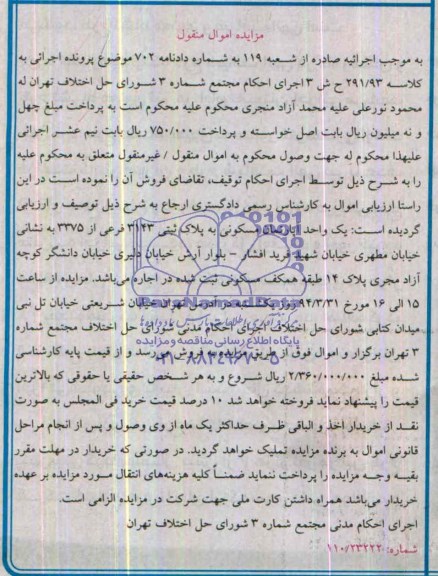 مزایده اموال منقول
به موجب اجرائیه صادره از شعبه ۱۱۹ به شماره دادنامه ۷۰۲ موضوع پرونده اجرائی به
کلاسه ۲۹۱/۹۳ ح ش ۳ اجرای احکام مجتمع شماره ۳ شورای حل اختلاف تهران له
محمود نورعلی علیه محمد آزاد منجری محکوم علیه محکوم است به پرداخت مبلغ چهل
و نه میلیون ریال بابت اصل خواسته و پرداخت ۷۵۰/۰۰۰ ریال بابت نیم عشر اجرائی
علیهذا محکوم له جهت وصول محکوم به اموال منقول / غیرمنقول متعلق به محکوم علیه
را به شرح ذیل توسط اجرای احکام توقیف، تقاضای فروش آن را نموده است در این
راستا ارزیابی اموال به کارشناس رسمی دادگستری ارجاع به شرح ذیل توصیف و ارزیابی
گردیده است: یک واحد آپارتمان مسکونی به پلاک ثبتی ۳۱۴۳ فرعی از ۳۳۷۵ به نشانی
خیابان مطهری خیابان شهید فرید افشار - بلوار آرش خیابان دلیری خیابان دانشگر کوچه
آزاد مجری پلاک ۱۴ طبقه همکف مسکونی ثبت شده در اجاره می‌باشد. مزایده از ساعت
۱۵ الی ۱۶ مورخ ۹۴/۳/۳۱ روز یکشنبه در آدرس تهران خیابان شریعتی خیابان تل نبی
میدان کتابی شورای حل اختلاف اجرای احکام مدنی شورای حل اختلاف مجتمع شماره
۳ تهران برگزار و اموال فوق از طریق مزایده به فروش می‌رسد و از قیمت پایه کارشناسی
شده مبلغ ۲/۳۶۰/۰۰۰/۰۰۰ ریال شروع و به هر شخص حقیقی یا حقوقی که بالاترین
قیمت را پیشنهاد نماید فروخته خواهد شد ۱۰ درصد قیمت خرید فی المجلس به صورت
نقد از خریدار اخذ و الباقی ظرف حداکثر یک ماه از وی وصول و پس از انجام مراحل
قانونی اموال به برنده مزایده تملیک خواهد گردید. در صورتی که خریدار در مهلت مقرر
بقیه وجه مزایده را پرداخت ننماید ضمناً کلیه هزینه‌های انتقال مورد مزایده بر عهده
خریدار می‌باشد همراه داشتن کارت ملی جهت شرکت در مزایده الزامی است.
اجرای احکام مدنی مجتمع شماره ۳ شورای حل اختلاف تهران
شماره: ۱۱۰/۲۳۲۲۲
پایگاه اطلاع رسانی مناقصه و مزایده
۰۲۱-۸۸۳۴۹۶۷۰-۵